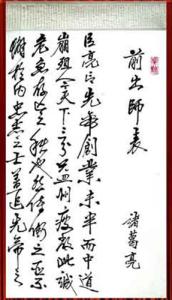 前出師表
諸葛亮
臣亮言先帝創業未半而中道
崩殂今天下三分益州疲敝此誠
危急存亡之秋也然侍衛之臣不
懈於内忠志之士蓋追先帝之